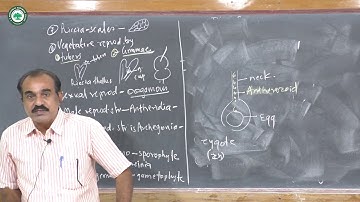 ② Riccia-scales-
③ Vegetative reprod by
① tubers ② Gemmae
Riccia thallus
cup
Sexual reprod- Oogamous
Male reprod. str- Antheridia-
str is Archegonia-
- sporophyte
gametophyte
neck-
Antherozoid
Egg
zygote
(2n)